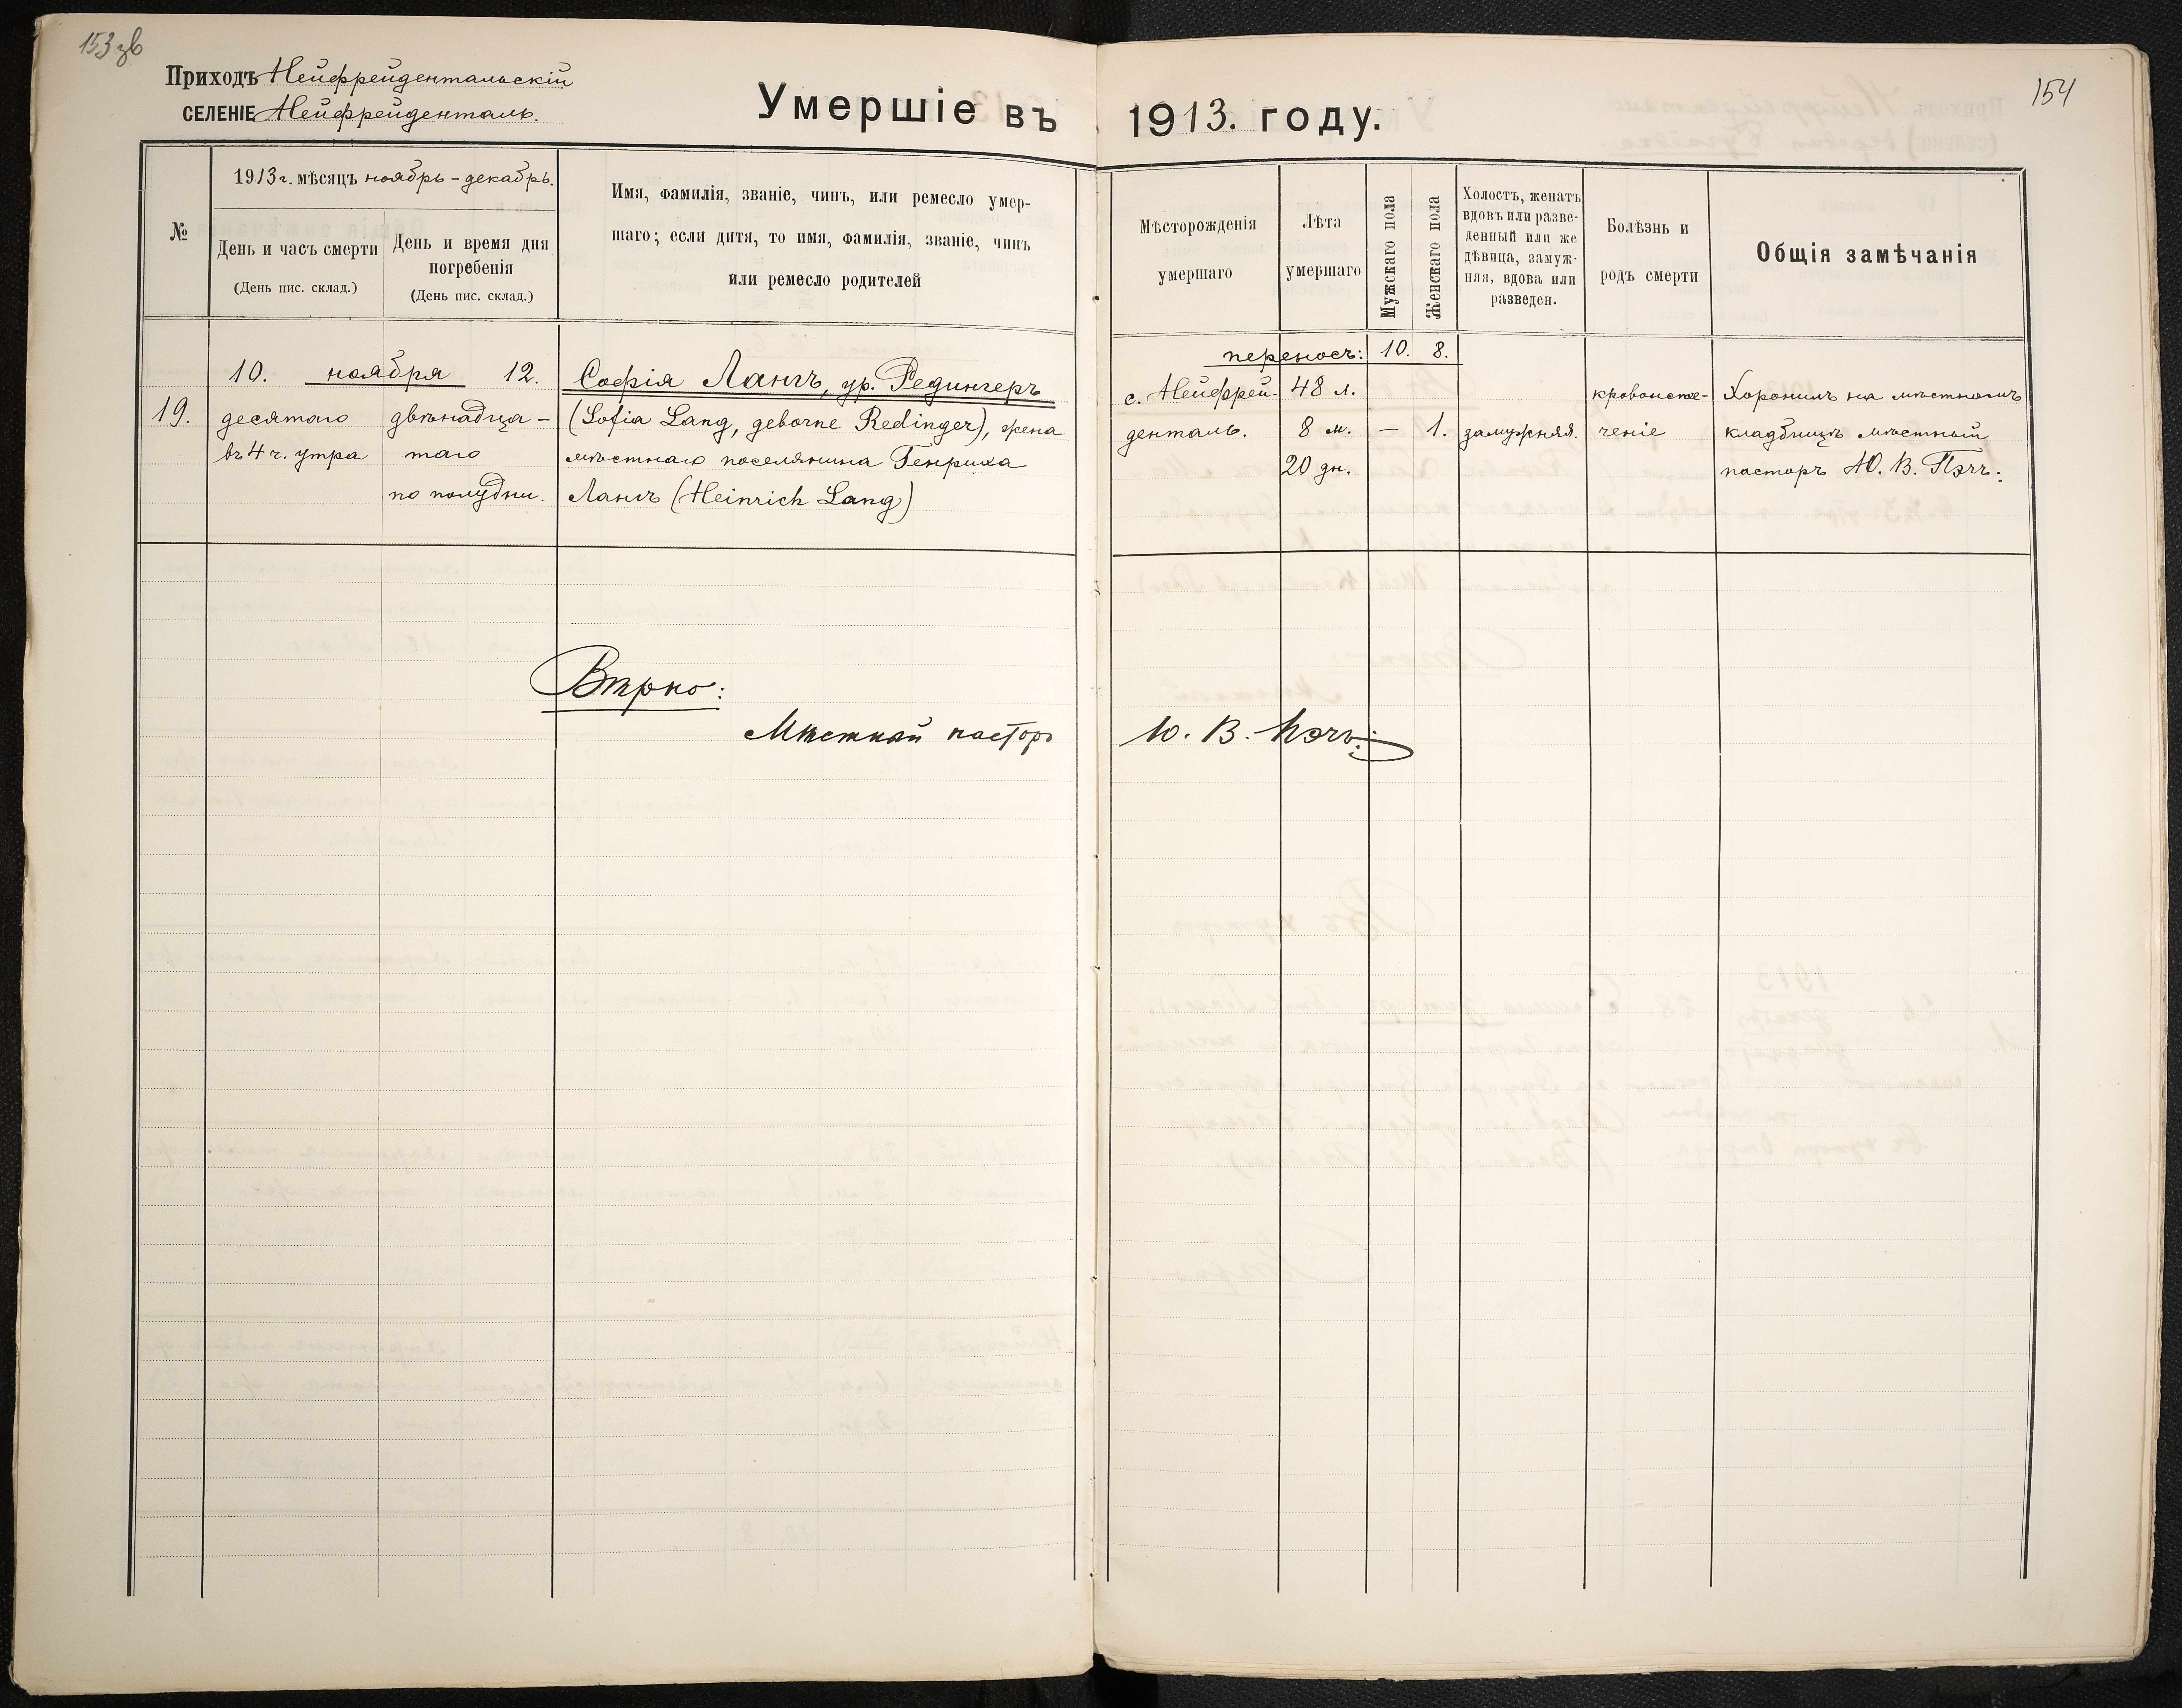 153 зв
154
Приходъ Нейфрейдентальскій
СЕЛЕНІЕ Нейфрейденталь.
Умершіе въ 1913. году.
№
1913 г. мѣсяцъ ноябрь – декабрь.
День и часъ смерти
(День пис. склад.)
День и время дня
погребенія
(День пис. склад.)
Имя, фамилія, званіе, чинъ, или ремесло умер-
шаго; если дитя, то имя, фамилія, званіе, чинъ
или ремесло родителей
Мѣсторожденія
умершаго
Лѣта
умершаго
Мужскаго пола
Женскаго пола
Холостъ, женатъ
вдовъ или разве-
денный или же
дѣвица, замуж-
няя, вдова или
разведен.
Болѣзнь и
родъ смерти
Общія замѣчанія
переносъ: 10. 8.
19.
10. ноября 12.
десятаго
въ 4 ч. утра
двѣнадца-
таго
по полудни.
Софія Лангъ, ур. Редингеръ
(Sofia Lang, geborne Redinger), жена
мѣстнаго поселянина Генриха
Лангъ (Heinrich Lang)
с. Нейфрей-
денталь.
48 л.
8 м.
20 дн.
—
1.
замужняя.
кровоисте-
ченіе
Хоронилъ на мѣстномъ
кладбищѣ мѣстный
пасторъ Ю. В. Пэчъ.
Вѣрно:
Мѣстный пасторъ Ю. В. Пэчъ.